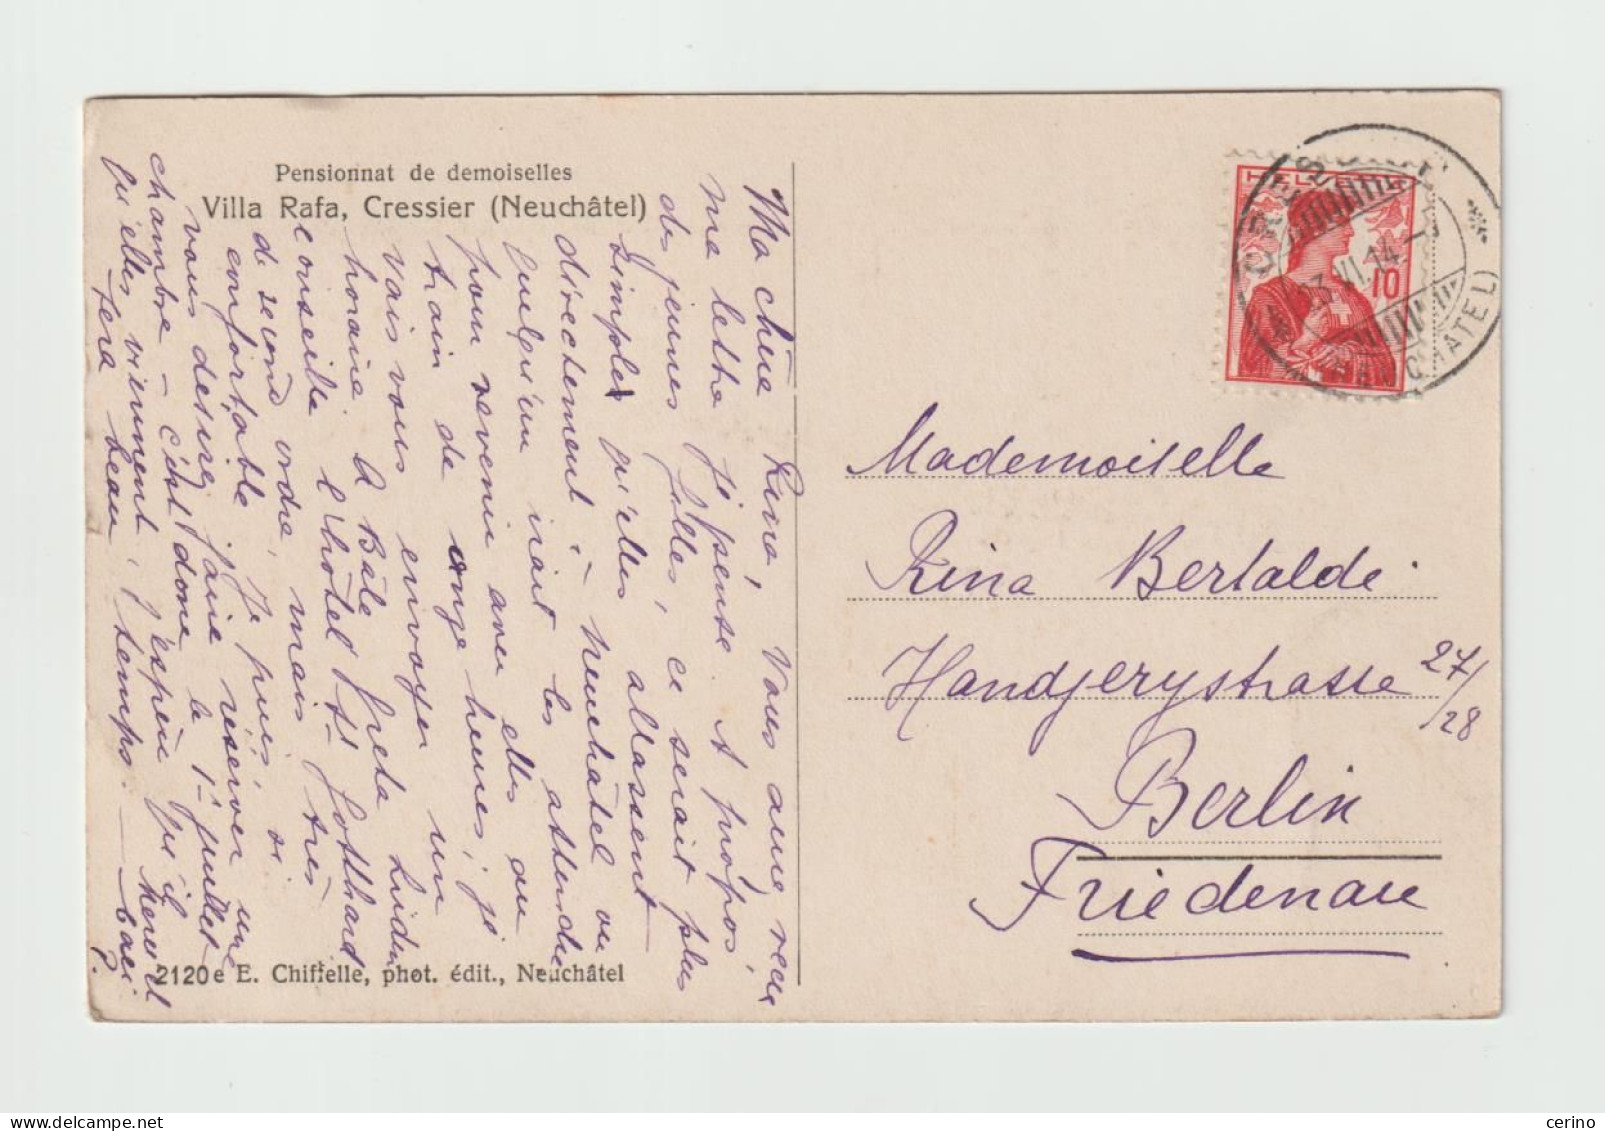 Pensionnat de demoiselles
Villa Rafa, Cressier (Neuchâtel)
Ma chère Rina, Vous aure reçu
ma lettre je pense. A propos
des jeunes filles, ce serait plus
simple qu'elles allassent
directement à Neuchâtel ou
quelqu'un irait les attendre
pour revenir avec elles au
train de onze heures; je
vais vous envoyer un
horaire. A Bâle Greta Luidin
conseille l'hôtel St Gotthard
de second ordre, mais très
confortable. Je puis, si
vous désirez, faire réserver une
chambre – c'est donc le 1er juillet
qu'elles viennent, j'espère qu'il
fera beau temps. — baci
HELVETIA
10
CRESSIER
3.VI.14
(NEUCHATEL)
Mademoiselle
Rina Bertalde.
Handjerystrasse 27/28
Berlin
Friedenau
2120e E. Chiffelle, phot. édit., Neuchâtel
cerino